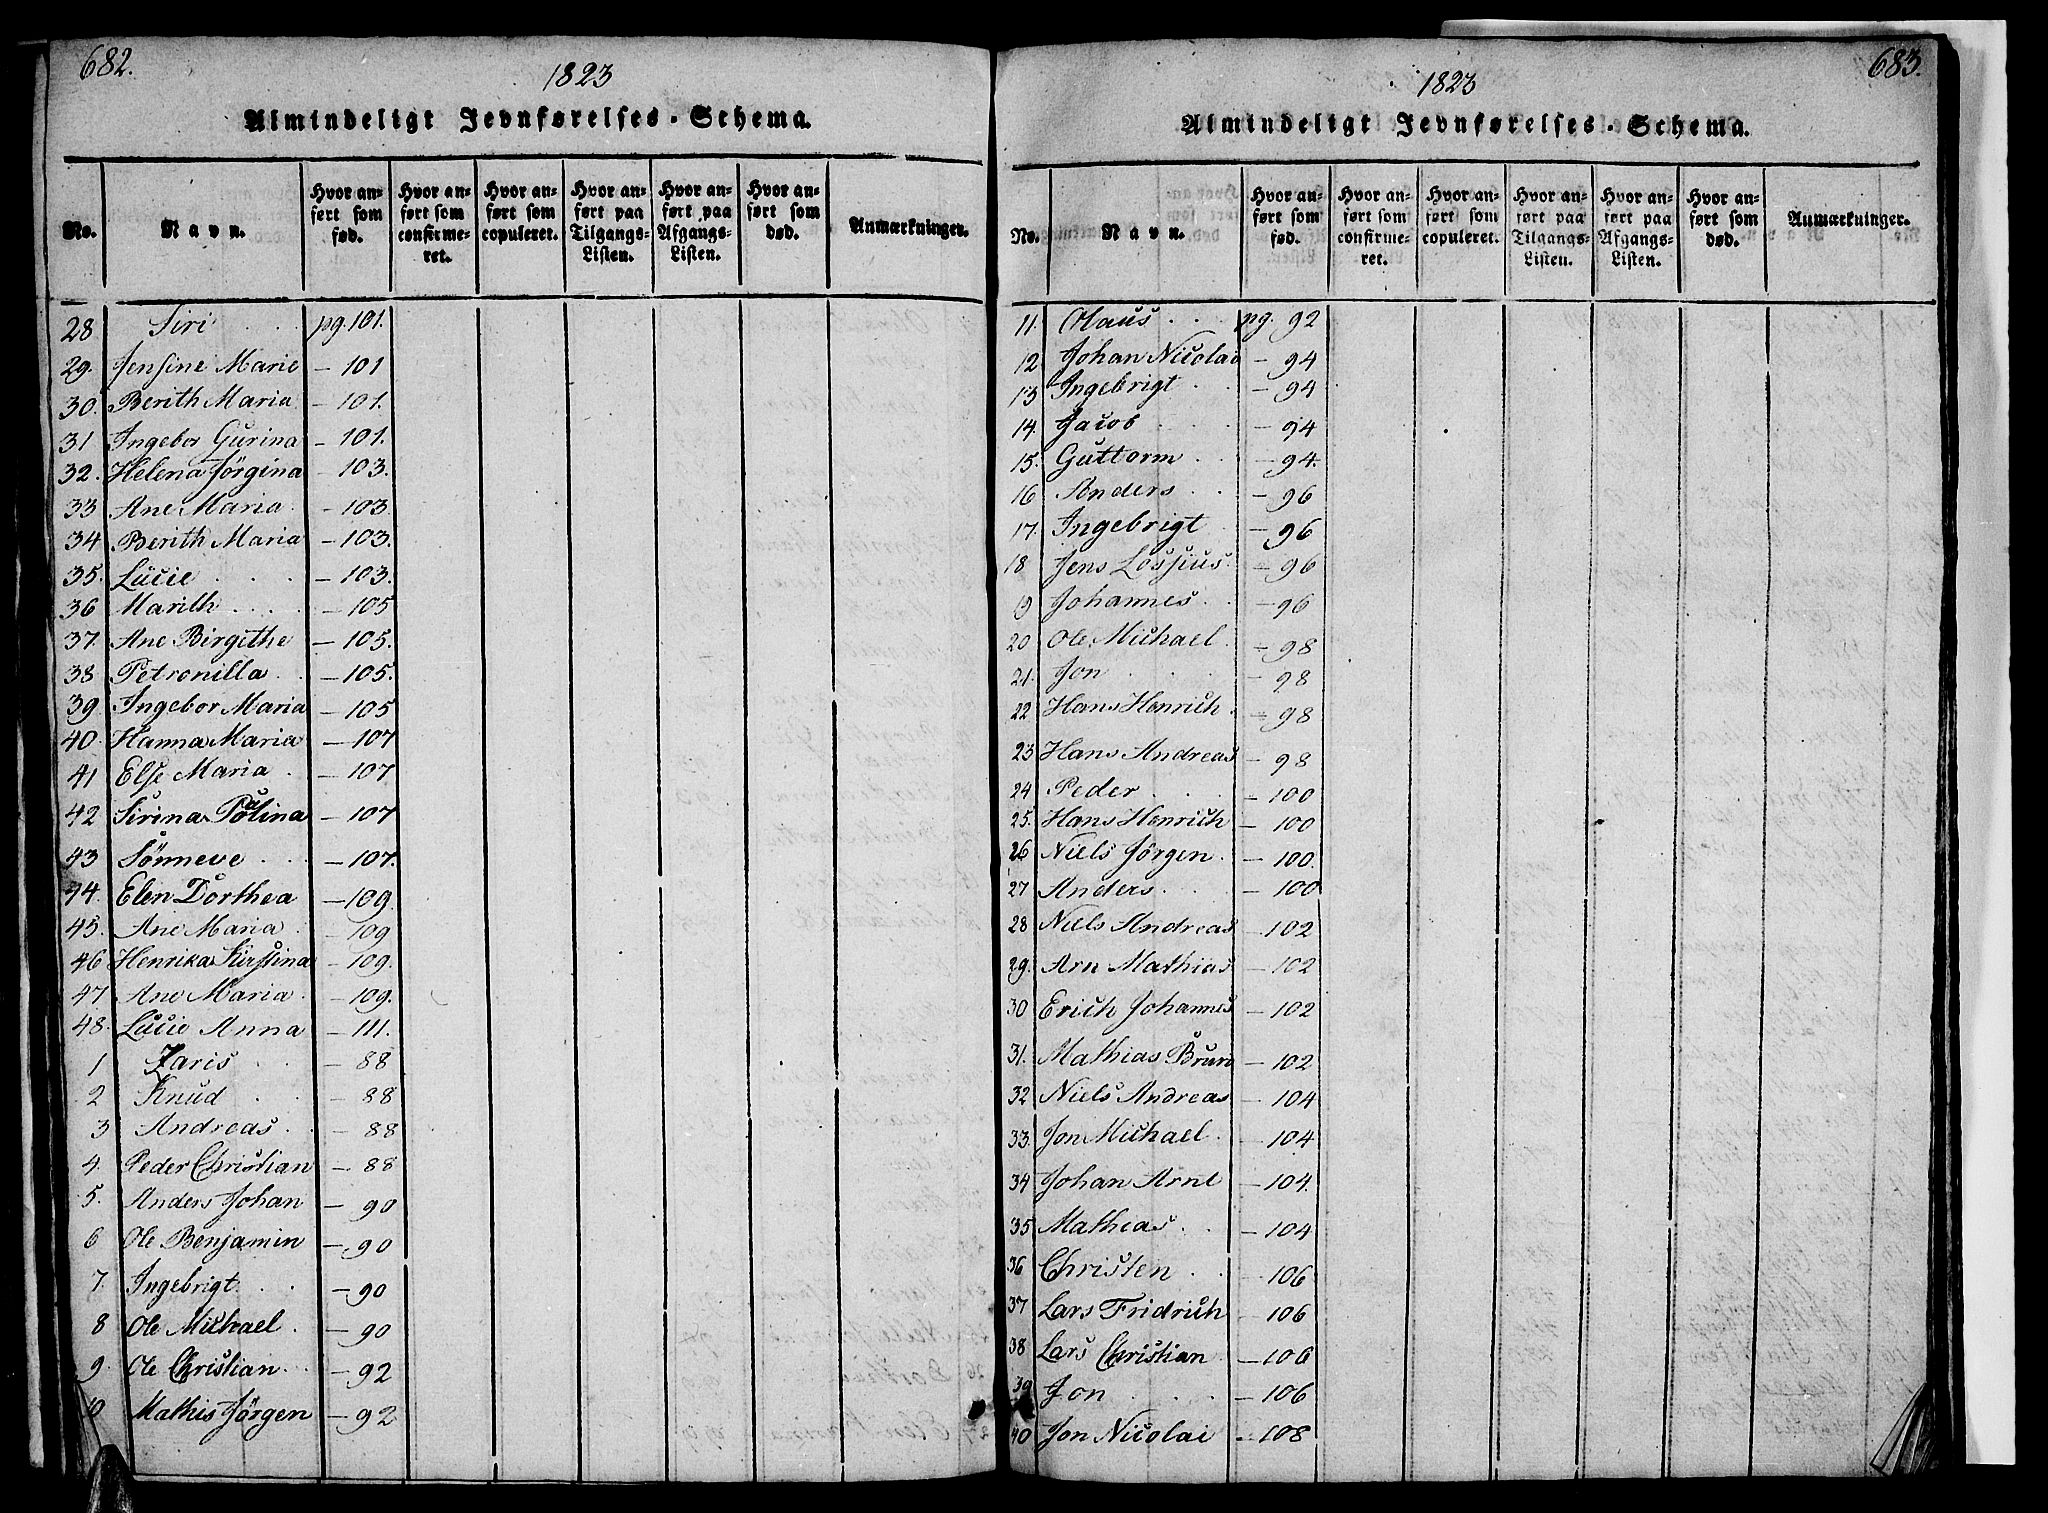 682.
1823
Almindeligt Jevnførelses-Schema.
No. Navn. Hvor anført som fød. Hvor anført som confirmeret. Hvor anført som copuleret. Hvor anført paa Tilgangs-Listen. Hvor anført paa Afgangs-Listen. Hvor anført som død. Anmærkninger.
28 Siri pg. 101.
29. Jensine Marie — 101
30. Berith Maria — 101.
31 Ingebor Gurina — 101.
32. Helena Jörgina — 103.
33 Ane Maria — 103.
34 Berith Maria — 103.
35. Lucie — 103.
36 Marith — 105
37. Ane Birgithe — 105.
38 Petronilla — 105.
39 Ingebor Maria — 105
40. Hanna Maria — 107
41 Else Maria — 107
42 Sirina Paulina — 107
43 Sönneve — 107.
44. Elen Dorthea — 109.
45. Ane Maria — 109
46 Henrika Kirstina — 109.
47 Ane Maria — 109.
48. Lucie Anna — 111.
1 Zaris — 88
2 Knud — 88
3 Andreas — 88
4. Peder Christian — 88
5. Anders Johan — 90
6 Ole Benjamin — 90
7. Ingebrigt — 90
8 Ole Michael — 90
9. Ole Christian — 92
10 Mathis Jörgen — 92
683.
1823
Almindeligt Jevnførelses-Schema.
No. Navn. Hvor anført som fød. Hvor anført som confirmeret. Hvor anført som copuleret. Hvor anført paa Tilgangs-Listen. Hvor anført paa Afgangs-Listen. Hvor anført som død. Anmærkninger.
11. Olaus pg. 92
12 Johan Nicolai — 94
13 Ingebrigt — 94
14. Jacob — 94
15. Guttorm — 94.
16 Anders — 96
17. Ingebrigt — 96
18 Jens Lossius — 96
19 Johannes — 96
20 Ole Michael — 98
21. Jon — 98
22 Hans Henrich — 98
23 Hans Andreas — 98
24 Peder — 100
25. Hans Henrich — 100
26 Niels Jörgen — 100.
27 Anders — 100
28 Niels Andreas — 102
29. Arn Mathias — 102
30 Erich Johannes — 102
31. Mathias Bruun — 102
32 Niels Andreas — 104
33. Jon Michael — 104
34 Johan Arnt — 104.
35 Mathias — 104
36 Christen — 106
37 Lars Fridrich — 106
38 Lars Christian — 106
39 Jon — 106
40 Jon Nicolai — 108